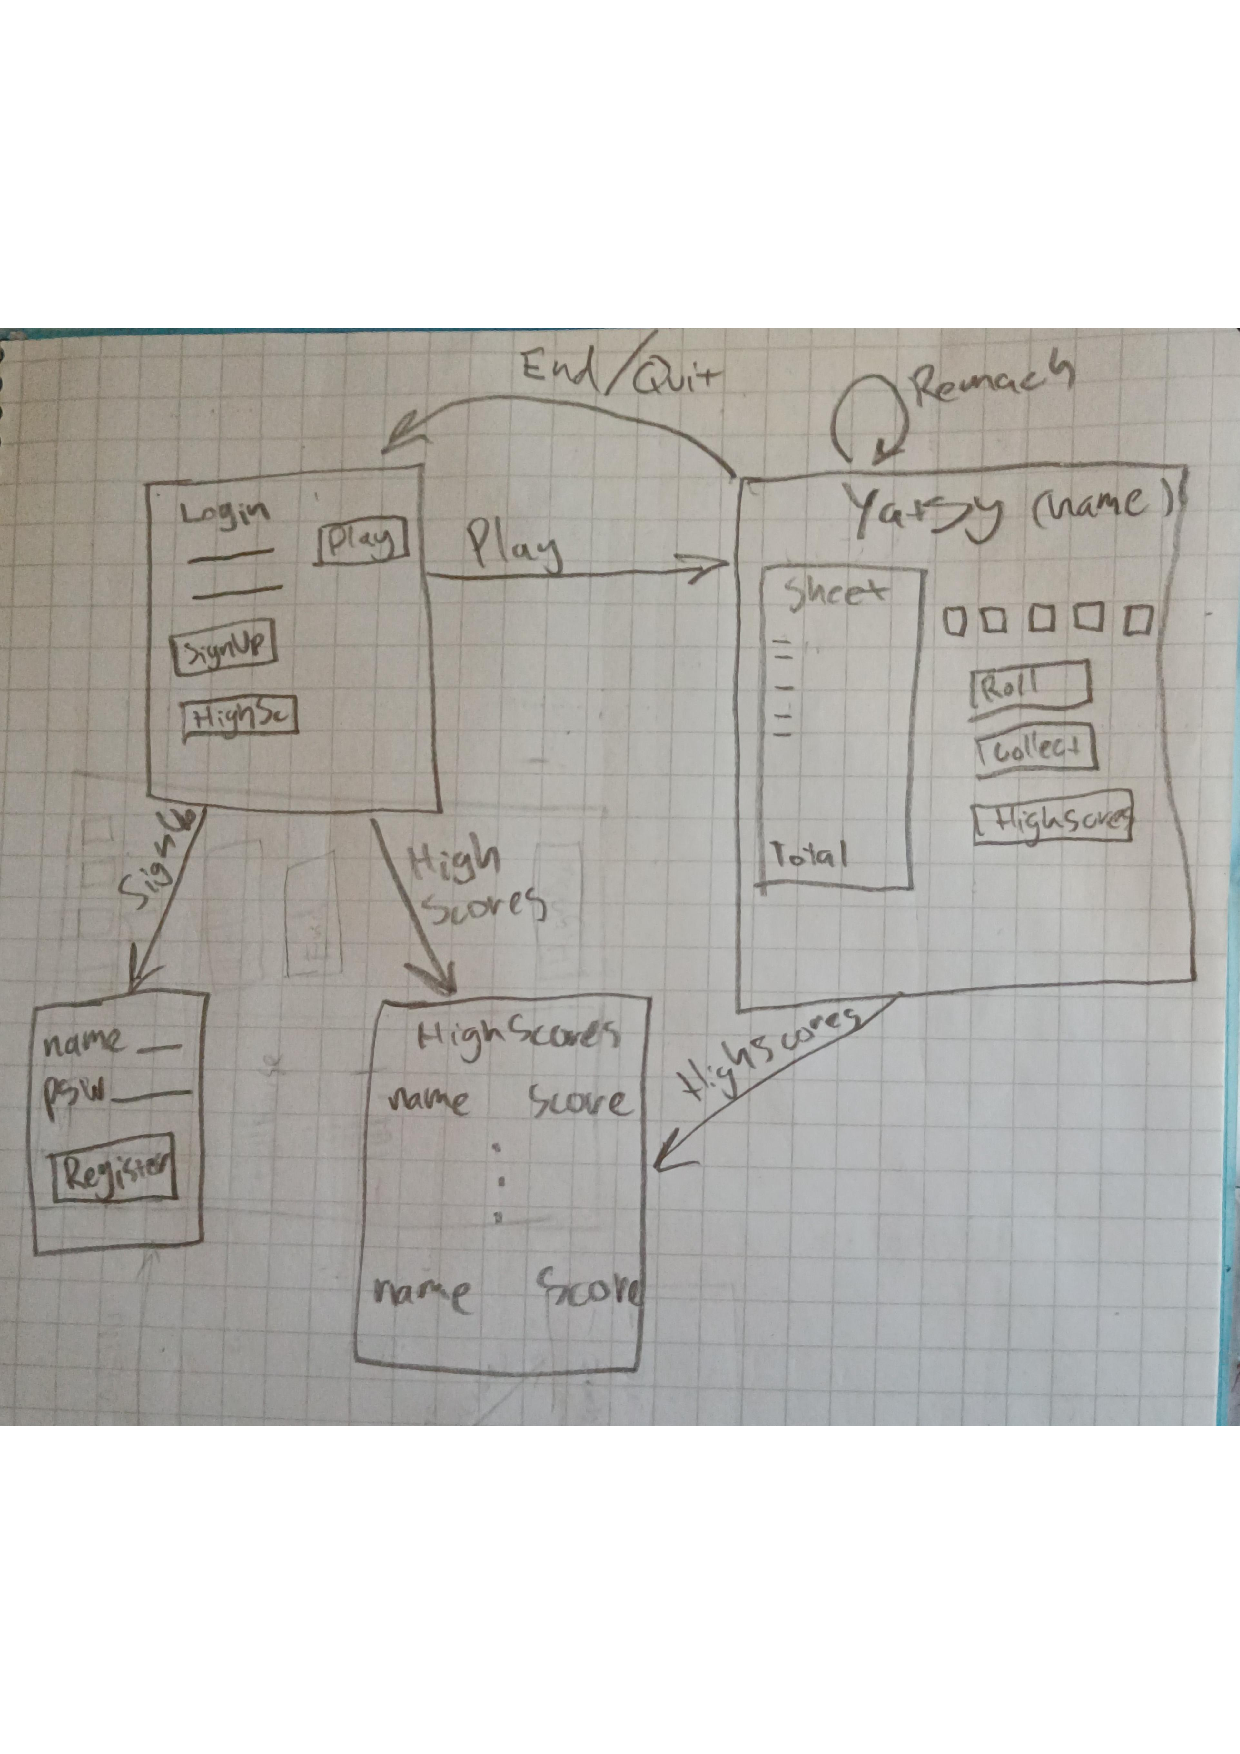 End/Quit
Remach
Login
Play
SignUp
HighSc
Play
Yatsy (name)
Sheet
Total
Roll
Collect
Highscores
SignUp
High
Scores
Highscores
name
psw
Register
HighScores
name Score
name Score